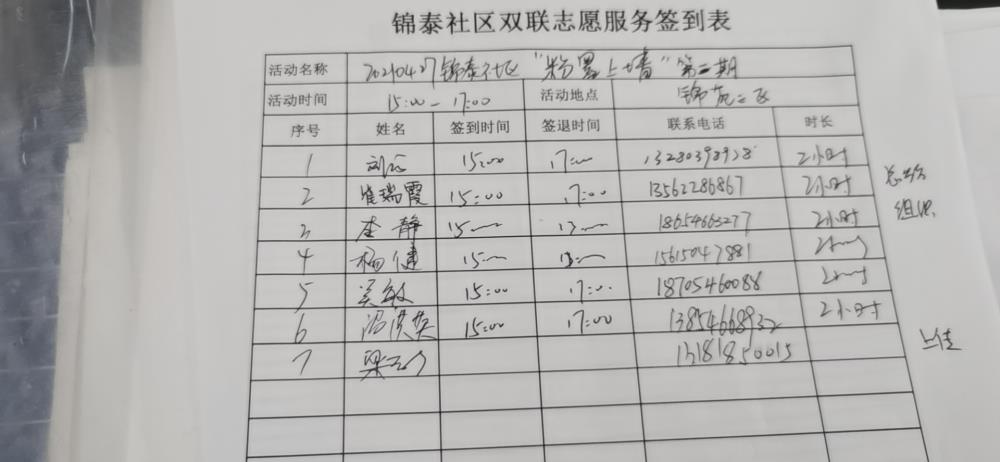 锦泰社区双联志愿服务签到表
活动名称 20210427锦泰社区"粉墨上墙"第二期
活动时间 15:00-17:00 活动地点 锦苑二区
序号 姓名 签到时间 签退时间 联系电话 时长
1 15:00 17:00 13280398928 2小时
2 崔瑞霞 15:00 17:00 13562286867 2小时
3 李静 15:00 17:00 18654663277 2小时
4 杨健 15:00 15615047881 2小时
5 吴敏 15:00 17:00 18705460088 2小时
6 冯洪英 15:00 17:00 13854668932 2小时
7 梁 13181850015
组织